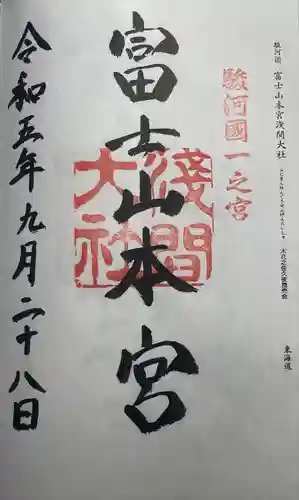 駿河國 富士山本宮浅間大社
東海道
駿河國一之宮
富士山本宮
淺間
大社
令和五年九月二十八日